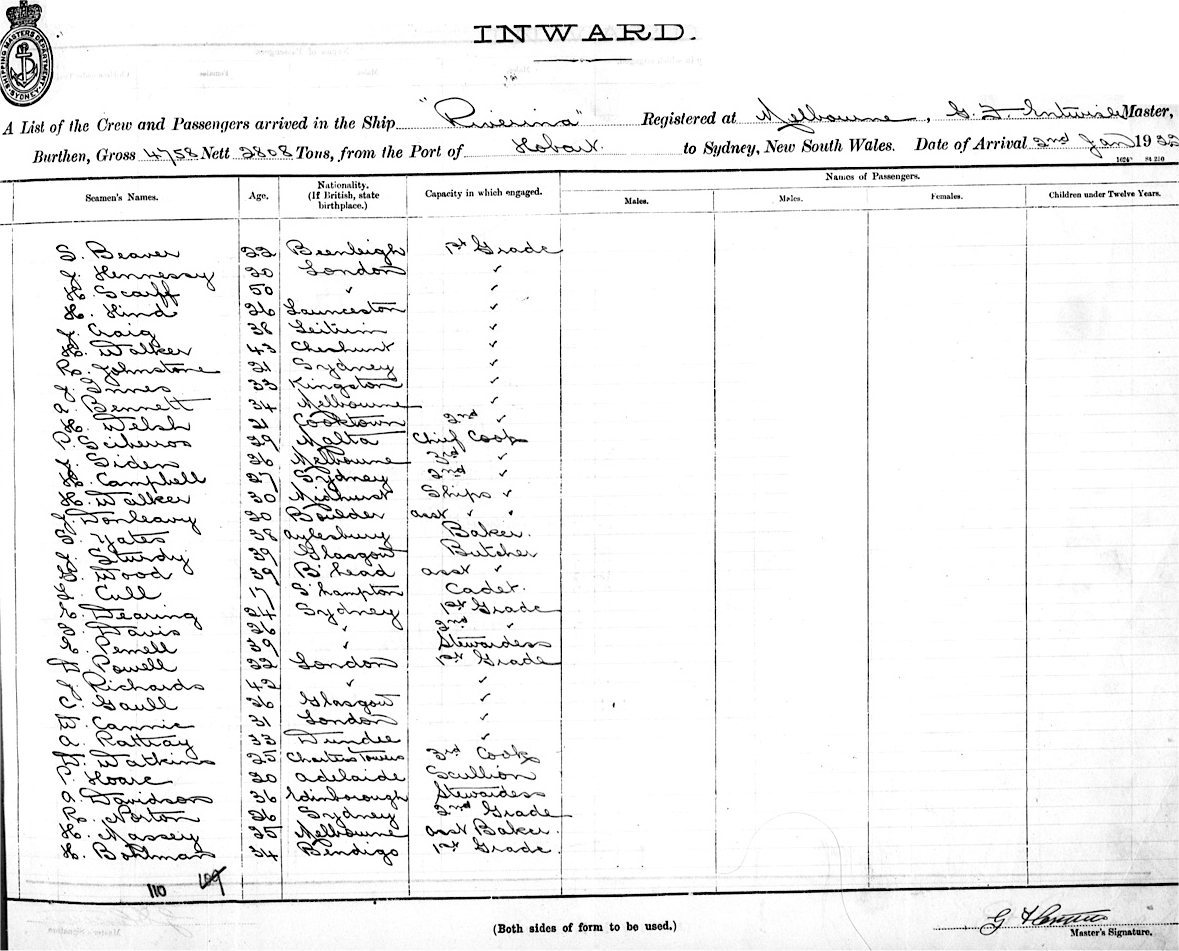 SHIPPING MASTERS DEPARTMENT SYDNEY
INWARD.
A List of the Crew and Passengers arrived in the Ship "Riverina" Registered at Melbourne, G. F. Entwisle Master,
Burthen, Gross 4758 Nett 2808 Tons, from the Port of Hobart. to Sydney, New South Wales. Date of Arrival 2nd Jan 1932
Names of Passengers.
Seamen's Names. Age. Nationality. (If British, state birthplace.) Capacity in which engaged. Males. Males. Females. Children under Twelve Years.
S. Beaver 22 Beenleigh 1st Grade
J. Hennessy 30 London "
Scarff 50 " "
H. Hind 26 Launceston "
J. Craig 38 Leitrim "
Walker 43 Cheshunt "
R. Johnstone 21 Sydney "
J. Innes 33 Kingston "
Bennett 34 Melbourne "
H. Welsh 21 Cooktown 2nd "
Sciberros 29 Malta Chief Cook
Siden 36 Melbourne 3rd "
Campbell 27 Sydney 2nd "
H. Walker 30 Midhurst Ships "
Donleavy 20 Boulder asst " "
Yates 38 Aylesbury Baker.
Sturdy 39 Glasgow Butcher
Wood 39 B'head asst "
Cull 17 S'hampton Cadet.
Dearing 24 Sydney 1st Grade
Davis 26 " 2nd "
Pemell 39 " Stewardess
Powell 22 London 1st Grade
Richards 42 " "
C. Gaull 36 Glasgow "
Cannie 31 London "
A. Rattray 33 Dundee "
Watkins 25 Charters Towers 3rd Cook
Hoare 20 Adelaide Scullion
A. Davidson 36 Edinborough Stewardess
R. Norton 26 Sydney 2nd Grade
H. Massey 25 Melbourne asst Baker.
H. Bohlman 34 Bendigo 1st Grade.
110 109
(Both sides of form to be used.)
Master's Signature.